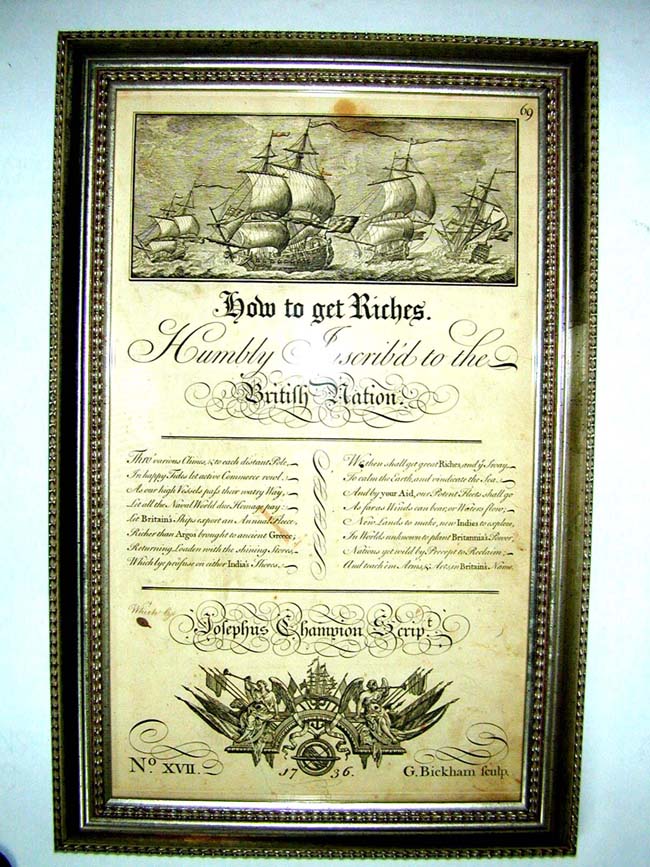 69
How to get Riches.
Humbly Inscrib'd to the
British Nation.
Thro' various Climes, & to each distant Pole,
In happy Tides let active Commerce rowl:
As our high Vessels pass their watry Way,
Let all the Naval World due Homage pay:
Let Britain's Ships export an Annual Fleece,
Richer than Argos brought to ancient Greece;
Returning Loaden with the shining Stores,
Which lye profuse on either India's Shores.
We then shall get great Riches, and yͤ Sway,
To calm the Earth, and vindicate the Sea.
And by your Aid, our Potent Fleets shall go
As far as Winds can bear, or Waters flow;
New Lands to make, new Indies to explore,
In Worlds unknown to plant Britannia's Power;
Nations yet wild by Precept to Reclaim;
And teach 'em Arms, & Arts, in Britain's Name.
Which lye
Josephus Champion Scripᵗ.
No. XVII.
1736.
G. Bickham sculp.